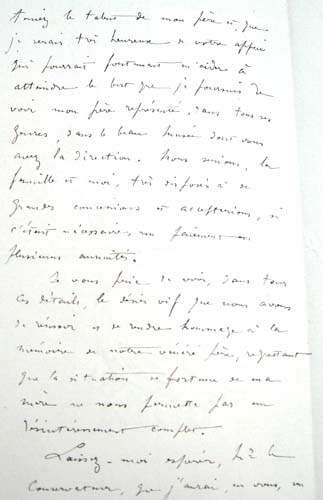 teniez le talent de mon père et que
je serais très heureux de votre appui
qui pourrait fortement m'aider à
atteindre le but que je poursuis de
voir mon père représenté, dans tous ses
genres, dans le beau musée dont vous
avez la direction. Nous serions, la
famille et moi, très disposés à de
grandes concessions et accepterions, si
c'était nécessaire, un paiement en
plusieurs annuités.
Je vous prie de voir, dans tous
ces détails, le désir vif que nous avons
de réussir et de rendre hommage à la
mémoire de notre vénéré père, regrettant
que la situation de fortune de ma
mère ne nous permette pas un
désintéressement complet.
Laissez-moi espérer, M. le
Conservateur, que j'aurai en vous, un